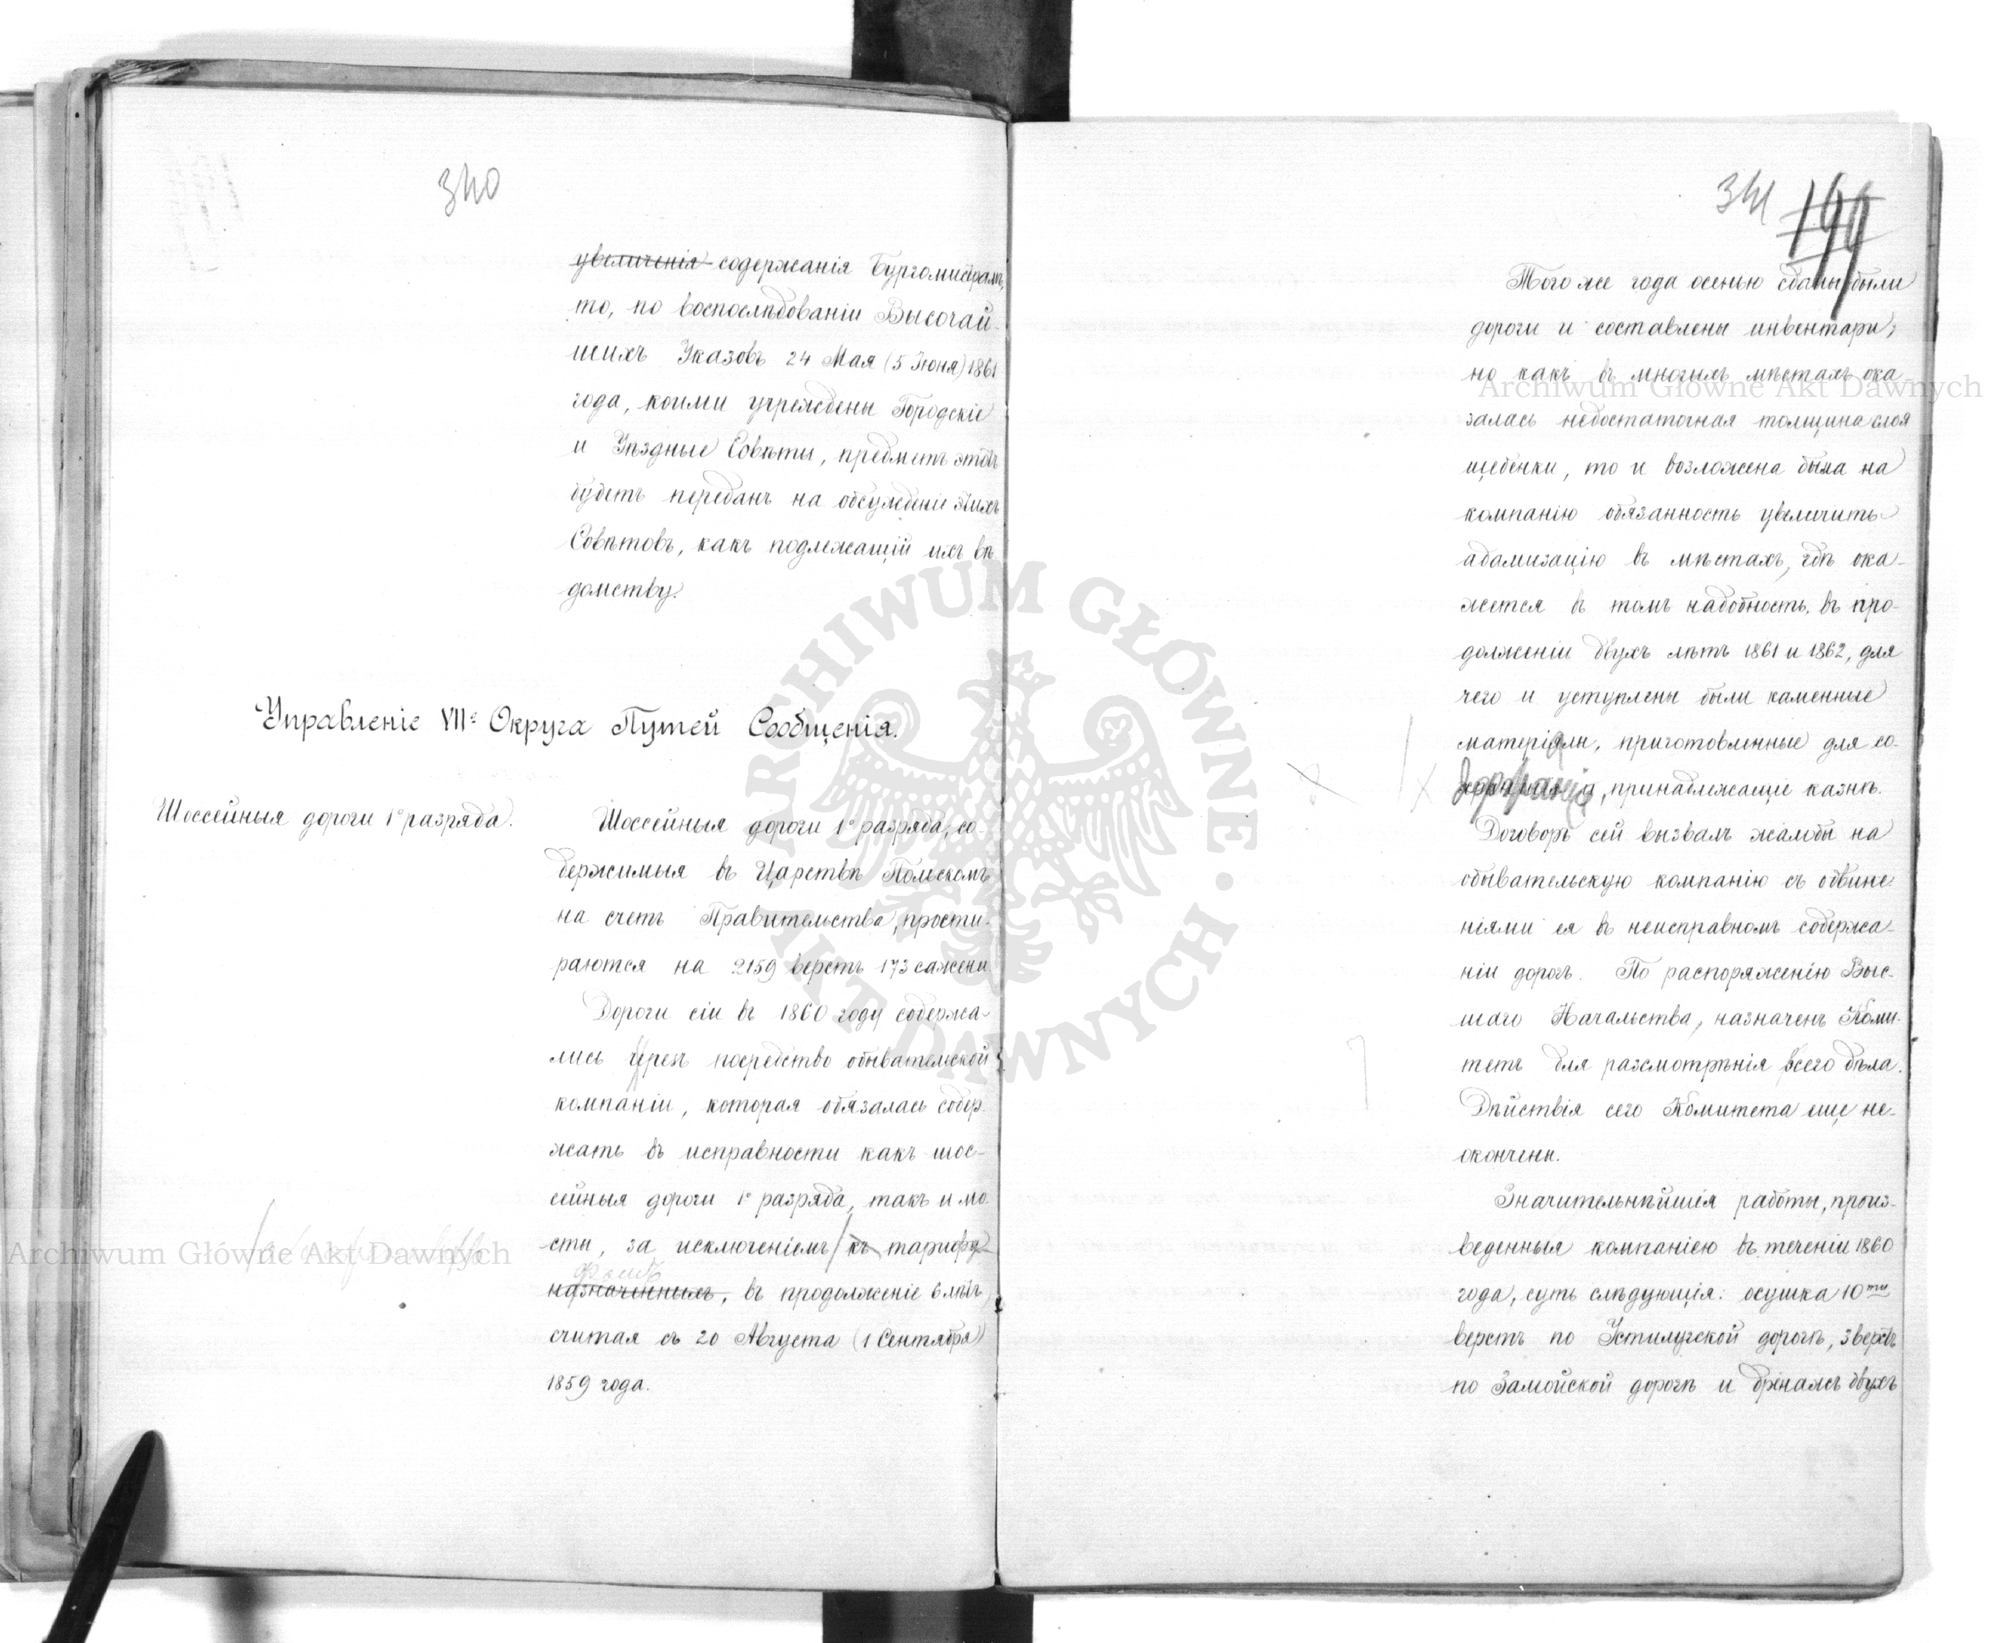 340
увеличенія содержанія Бургомистрамъ,
то, по воспослѣдованіи Высочай-
шихъ Указовъ 24 Мая (5 Іюня) 1861
года, коими учреждены Городскіе
и Уѣздные Совѣты, предметъ этотъ
будетъ переданъ на обсужденіе этихъ
Совѣтовъ, какъ подлежащій ихъ вѣ
домству.
Управленіе VIIго Округа Путей Сообщенія.
Шоссейныя дороги 1º разряда.
Шоссейныя дороги 1º разряда, со-
держимыя въ Царствѣ Польскомъ
на счетъ Правительства, прости-
раются на 2159 верстъ 173 сажени
Дороги сіи въ 1860 году содержа-
лись чрезъ посредство обывательской
компаніи, которая обязалась содер
жать въ исправности какъ шос-
сейныя дороги 1º разряда, такъ и мо
сты, за исключеніемъ къ тарифу
назначеннымъ, въ продолженіе 6 лѣтъ,
считая съ 20 Августа (1 Сентября)
1859 года.
341 199
Того же года осенью сданы были
дороги и составлены инвентари;
но какъ въ многихъ мѣстахъ ока
залась недостаточная толщина слоя
щебенки, то и возложена была на
компанію обязанность увеличить
адамизацію въ мѣстахъ, гдѣ ока-
жется въ томъ надобность, въ про-
долженіи двухъ лѣтъ 1861 и 1862, для
чего и уступлены были каменные
матеріялы, приготовленные для со-
держанія, принадлежащіе казнѣ.
Договоръ сей вызвалъ жалобы на
обывательскую компанію съ обвине
ніями ея въ неисправномъ содержа-
ніи дорогъ. По распоряженію Выс-
шаго Начальства, назначенъ Коми-
тетъ для разсмотрѣнія всего дѣла.
Дѣйствія сего Комитета еще не-
окончены.
Значительнѣйшія работы, произ-
веденныя компаніею въ теченіи 1860
года, суть слѣдующія: осушка 10ти
верстъ по Устилугской дорогѣ, 3 верстъ
по Замойской дорогѣ и дренажъ двухъ
Archiwum Główne Akt Dawnych
Archiwum Główne Akt Dawnych
ARCHIWUM GŁÓWNE AKT DAWNYCH